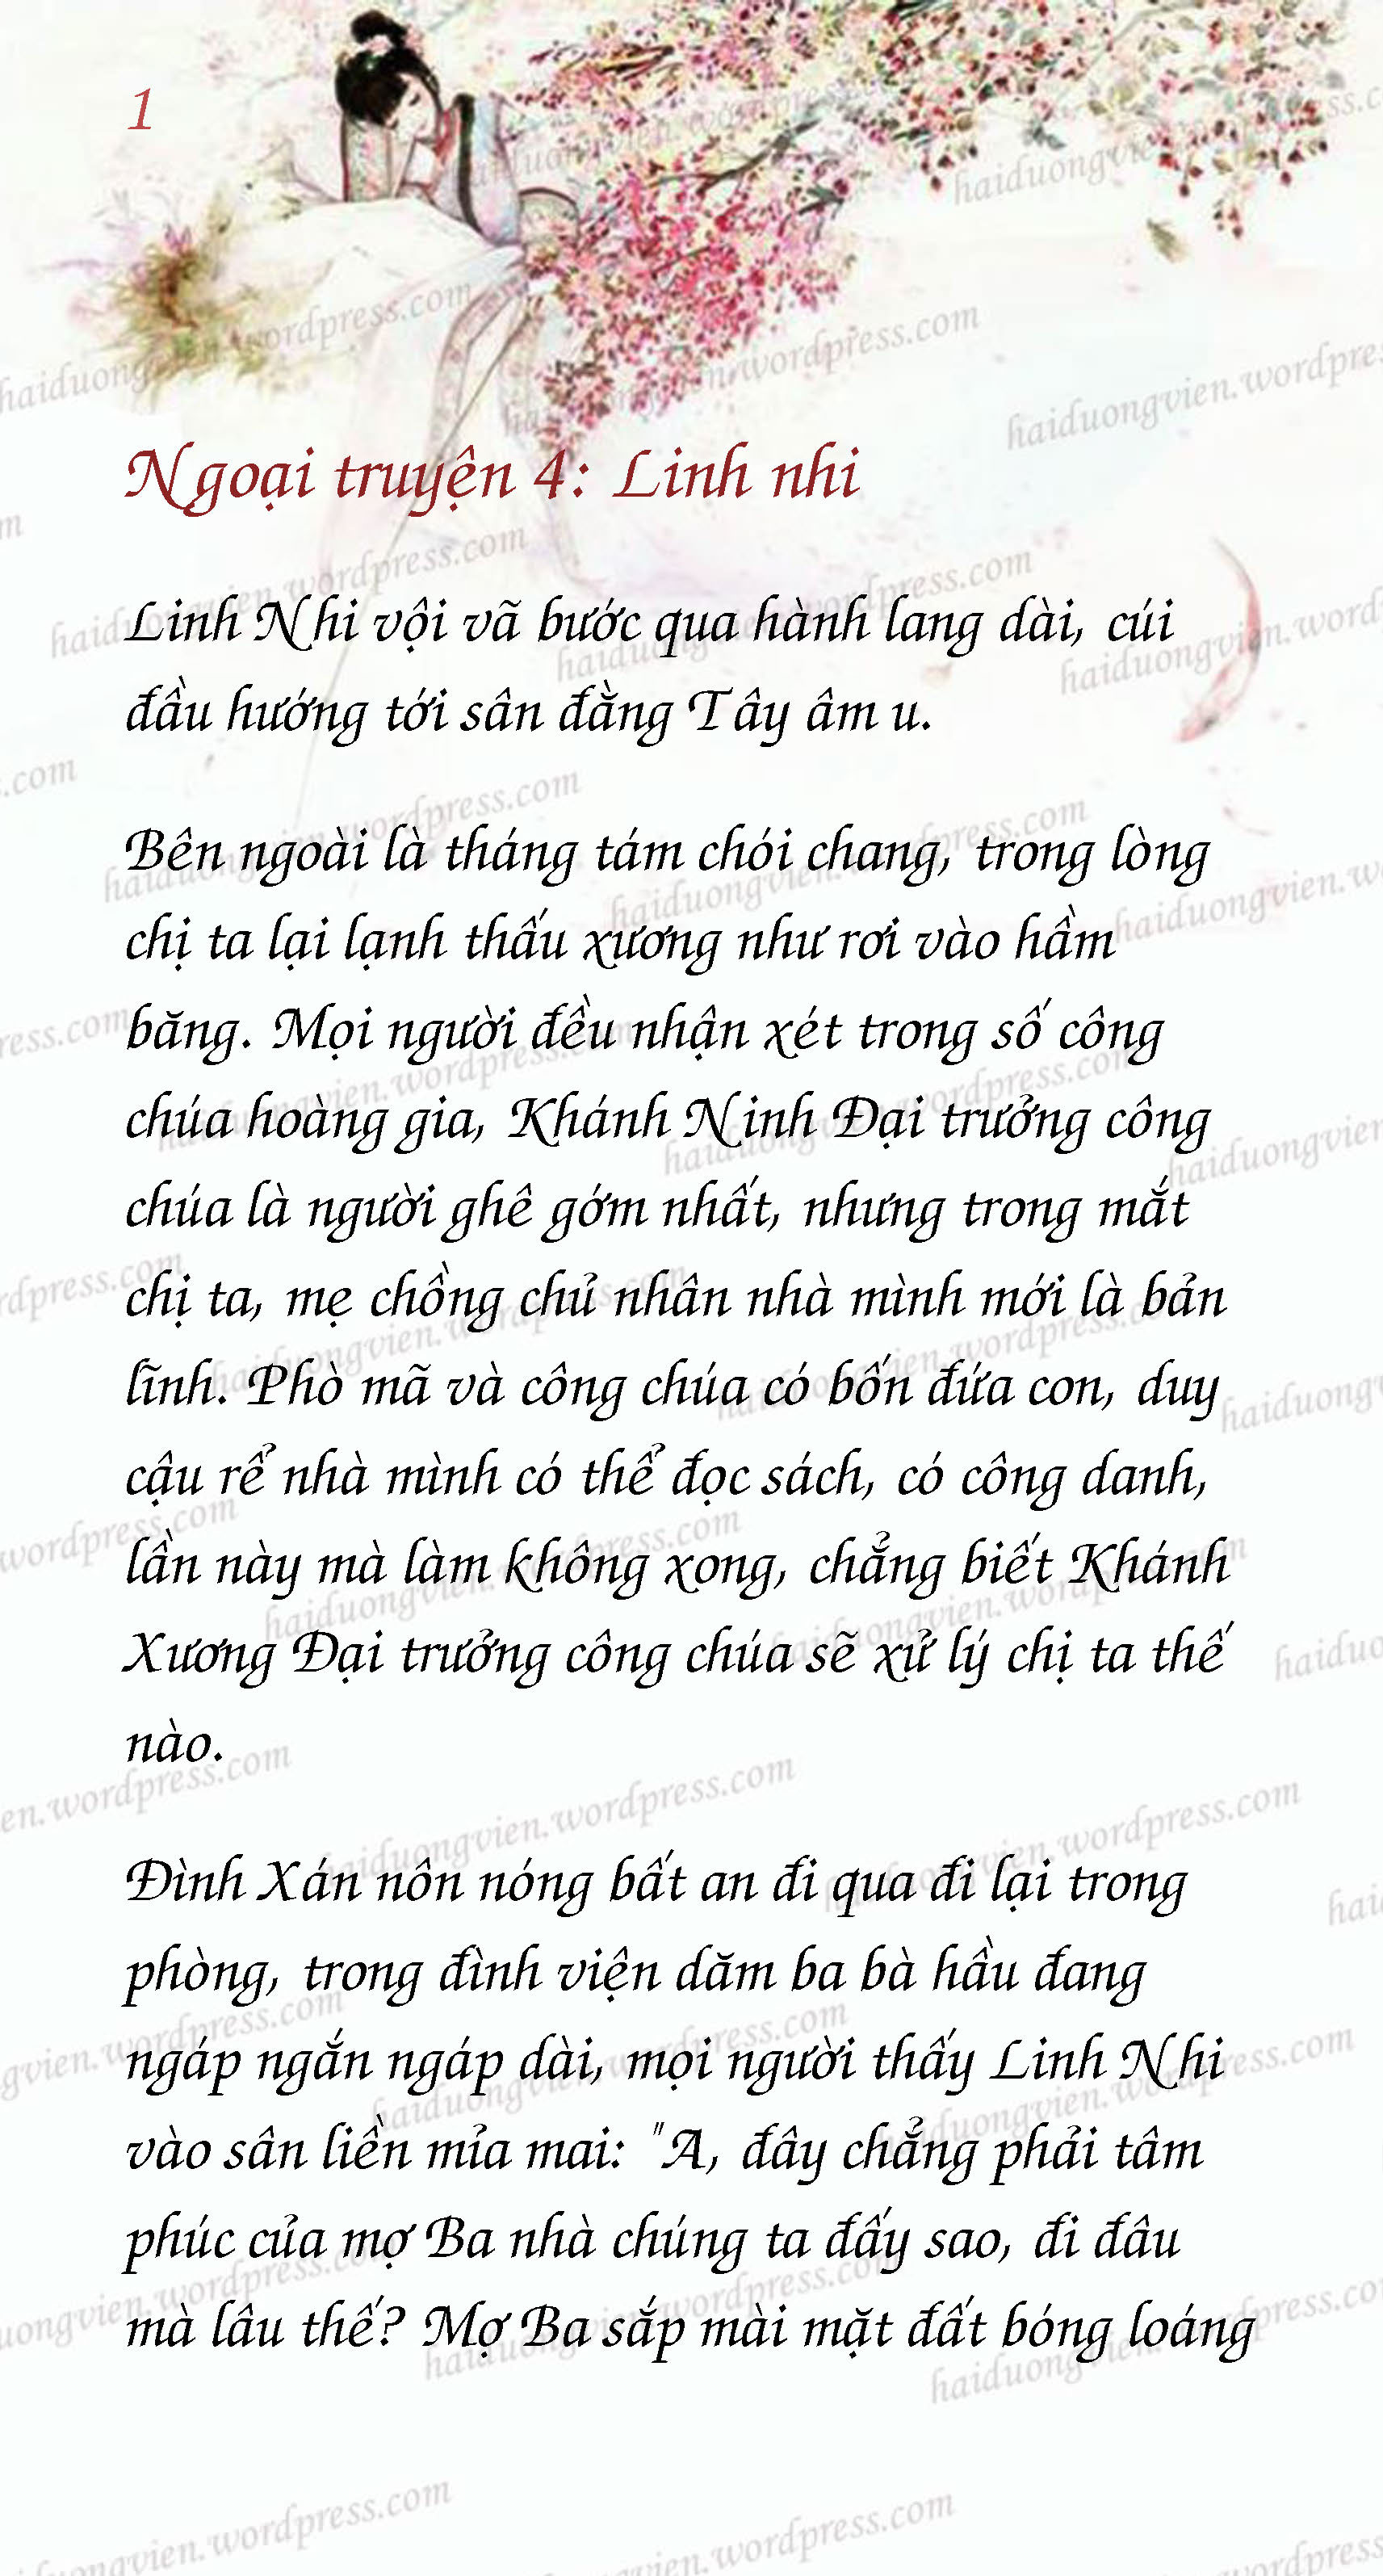 1
Ngoại truyện 4: Linh nhi
Linh Nhi vội vã bước qua hành lang dài, cúi
đầu hướng tới sân đằng Tây âm u.
Bên ngoài là tháng tám chói chang, trong lòng
chị ta lại lạnh thấu xương như rơi vào hầm
băng. Mọi người đều nhận xét trong số công
chúa hoàng gia, Khánh Ninh Đại trưởng công
chúa là người ghê gớm nhất, nhưng trong mắt
chị ta, mẹ chồng chủ nhân nhà mình mới là bản
lĩnh. Phò mã và công chúa có bốn đứa con, duy
cậu rể nhà mình có thể đọc sách, có công danh,
lần này mà làm không xong, chẳng biết Khánh
Xương Đại trưởng công chúa sẽ xử lý chị ta thế
nào.
Đình Xán nôn nóng bất an đi qua đi lại trong
phòng, trong đình viện dăm ba bà hầu đang
ngáp ngắn ngáp dài, mọi người thấy Linh Nhi
vào sân liền mỉa mai: "A, đây chẳng phải tâm
phúc của mợ Ba nhà chúng ta đấy sao, đi đâu
mà lâu thế? Mợ Ba sắp mài mặt đất bóng loáng
haiduongvien.wordpress.com